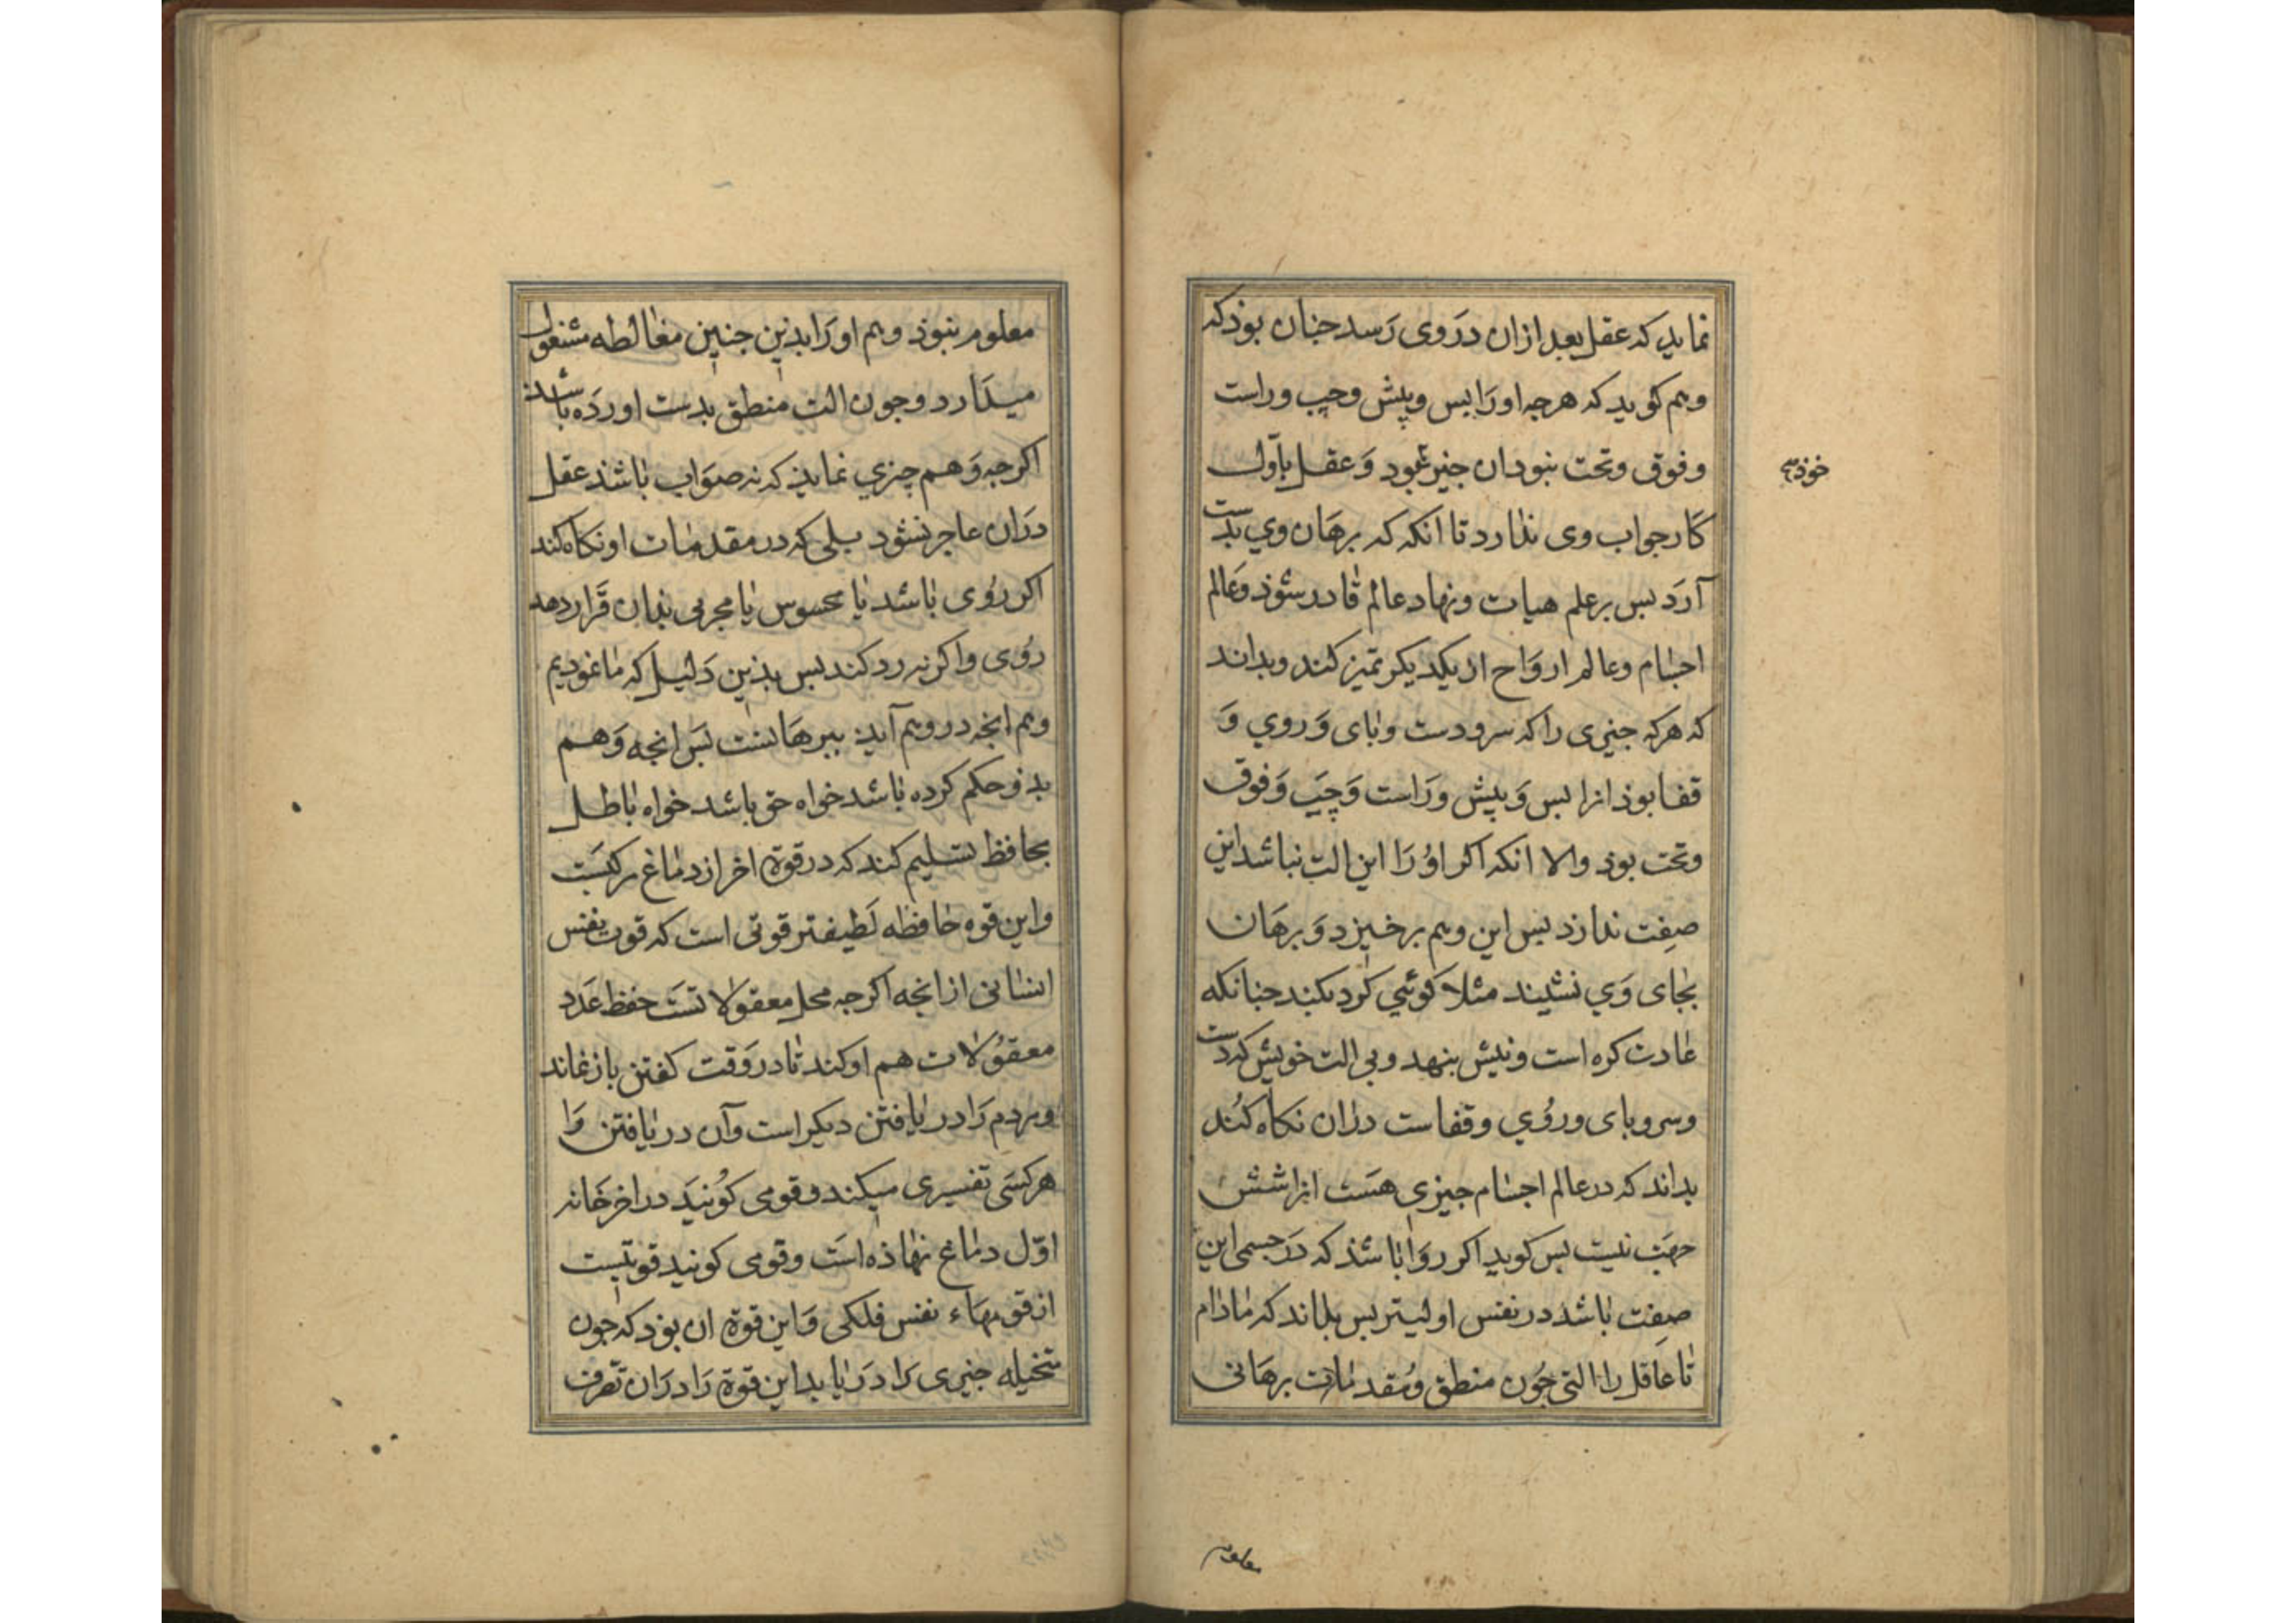 نماید که عقل بعد ازان دَروی رَسد جنان بوذ که
وهم کوید که هرجه اورَا پس وپیش وچپ وراست
وفوق وتحت نبود ان جنیز نبود وَعقل باَوّل
خوذ
کار جواب وی نذارد تا انکه که برهَان وي بدست
آرَد بس برعلم هیات ونهاد عالم قادر شوذ وَعالم
اجسام وعالم ارواح از یکدیکر تمیز کند وبداند
که هرکه جنیزی را که سرو دست وبای وَروي وَ
قفا بوذ انرا بس وَپیش ورَاست وَچپ وَفوق
وتحت بوذ والا انکه اکر اوُرَا این الت نباشد این
صفت ندارد بس این وهم برخیزد وَبرهَان
بجای وَي نشیند مثلا کوئي کرد بکند جنانکه
عادت کره است وبیش بنهد وبی الت خویش که دست
وسروبای وروُي وقفاست دران نکاه کُند
بداند که درعالم اجسام جیزی هسَت انرا شش
جهَت نیست بس کوید اکر روَا باشد که دَرجسمی این
صفِت باشد در نفس اولیتر بس بداند که مادام
تا عاقل را التی جُون منطق ومُقدمات برهَانی
معلوم
معلوم نبوذ وهم اورَا بدین جنین مغالطه مشغول
میدَارد وجون الت منطق بدست اورده باشد
اکرجه وَهم چیزي نماید که نه صوَاب باشد عقل
درَان عاجز نشود بلی که در مقدمات او نکاه کند
اکر رُوی باشد یا محسوس یا مجربی بدان قَرار دهد
روُی واکر نه رد کند بس بذین دَلیل که ما نمودیم
وهم انجه در وهم آید ببرهانست بَس انجه وَهم
بذو حکم کرده باشد خواه حق باشد خواه باطل
بحافظ تسلیم کند که در قوة اخر از دماغ مرکبَست
واین قوه حافظه لَطیفتر قوتی است که قوت نفس
انسانی از انجه اکرجه محل معقولاتست حفظ عَدد
معقوُلات هم او کند تا در وَقت کفتن باز نماند
ومردم رَا در یافتن دیکر است وآن در یافتن رَا
هرکسَی تفسیری میکند وقومی کوُنیَد در اخر خَانه
اوّل دماغ نهاذه اسَت وقومی کونید قوتیست
از قوتهَاء نفس فلکی وَاین قوة ان بوذ که جون
متخیله جنیزی رَا دَریابد این قوة رَا درَان تَصرف